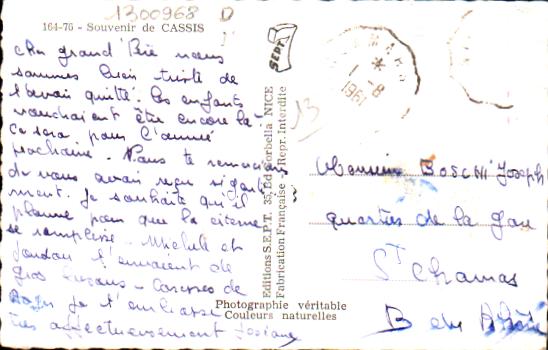 1300968 D
164-76 - Souvenir de CASSIS
cher grand Père nous
sommes bien triste de
t'avoir quitté. Les enfants
voudraient être encore là
ce sera pour l'année
prochaine. Nous te remercions
de nous avoir reçu si genti
ment. Je souhaite qu'il
pleuve pour que la citerne
se remplisse. Michèle et
t'envoient de
gros bisous. Caresses de
je t'embrasse
très affectueusement Josiane
SEPT
Editions S.E.P.T. 35, Bd Gorbella NICE
Fabrication Française - Repr. Interdite
1961
13
Monsieur BOSCHI Joseph
quartier de la Gare
ST Chamas
B du Rhône
Photographie véritable
Couleurs naturelles